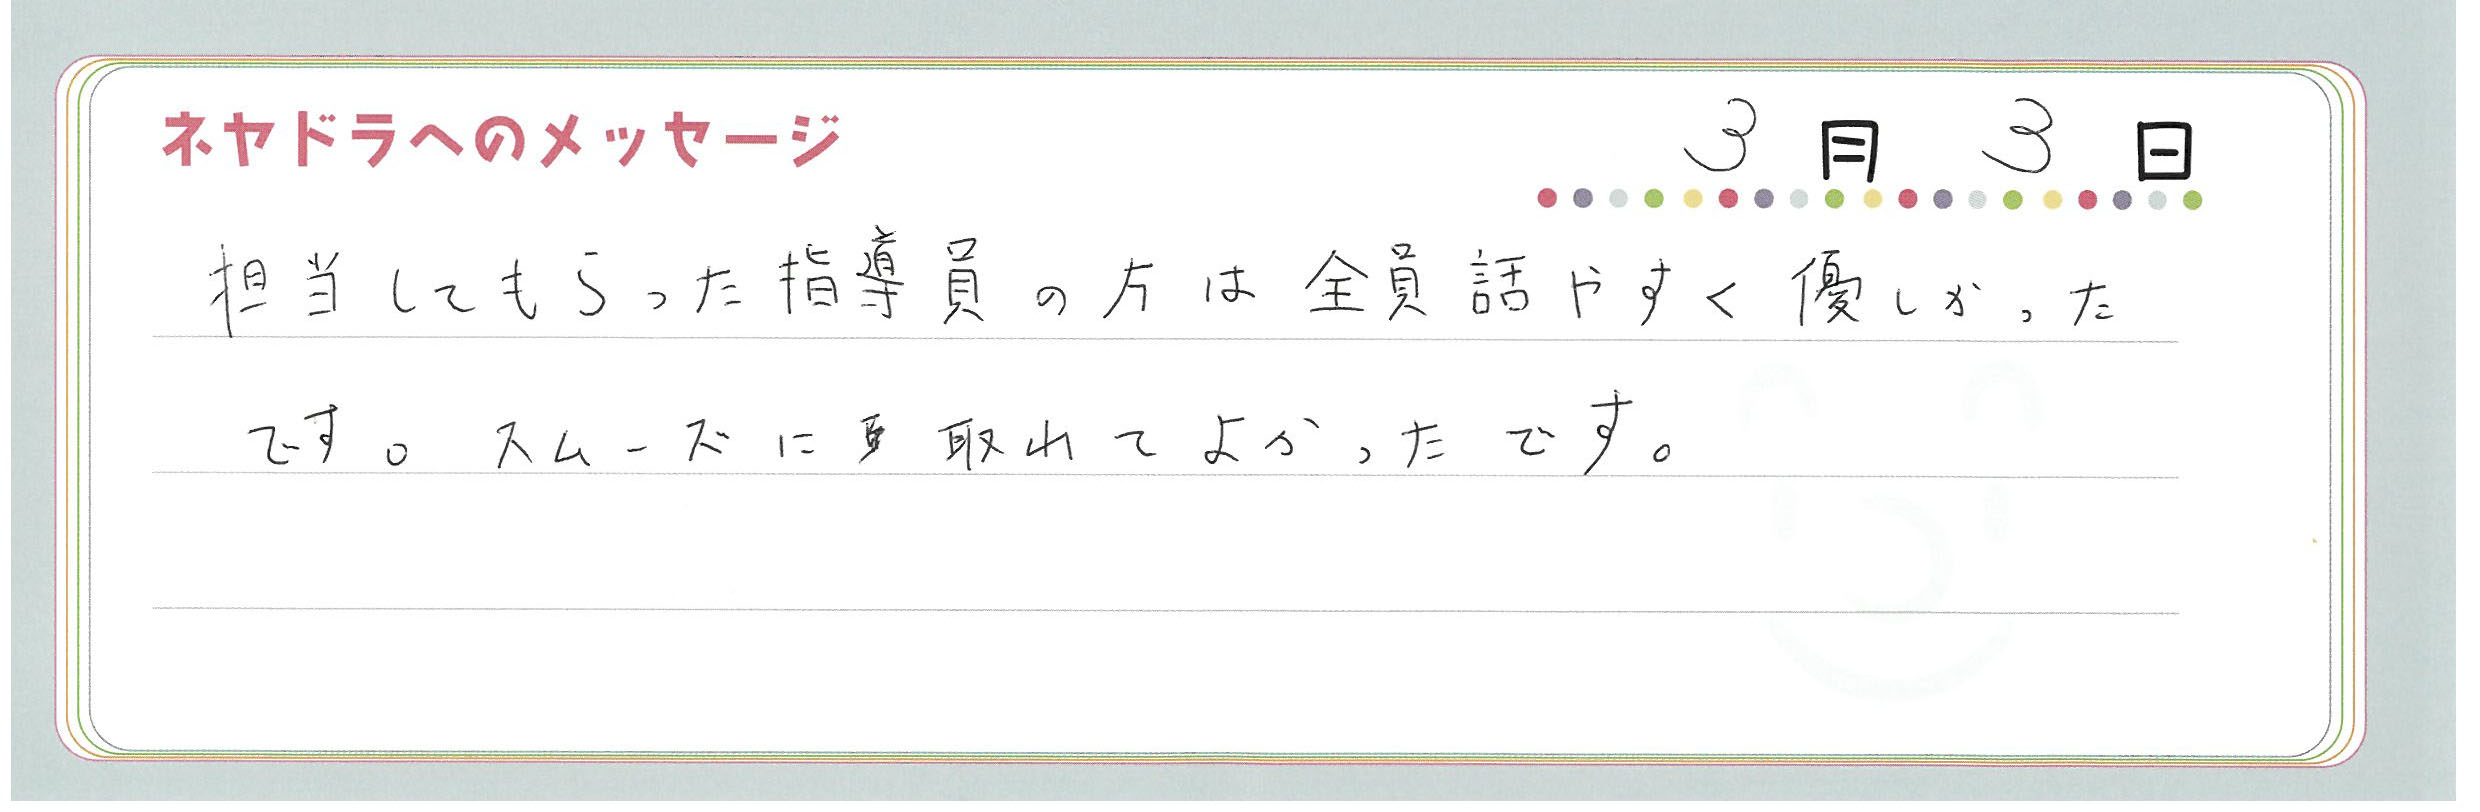 ネヤドラへのメッセージ
3月 3日
担当してもらった指導員の方は全員話やすく優しかった
です。スムーズに取れてよかったです。